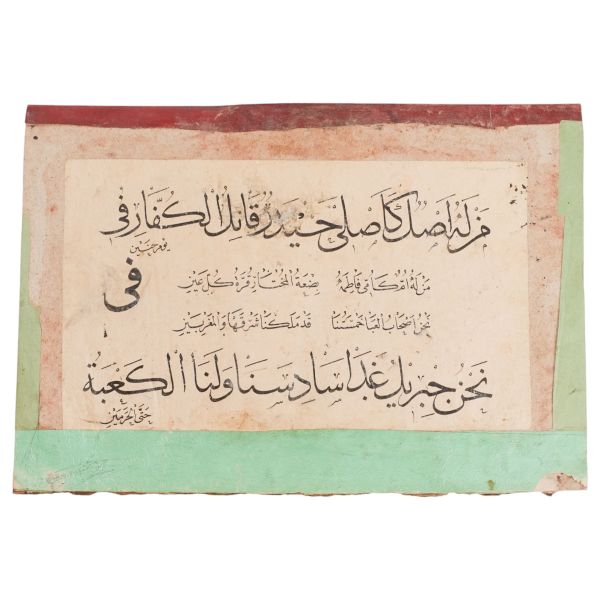 من له اصل كاصلى حيدر قاتل الكفار فى
يوم حنين
فى
من له ام كامى فاطمة بضعة المختار قرة كل عين
نحن اصحاب العبا خمستنا قد ملكنا شرقها والمغربين
نحن جبريل غدا سادسنا ولنا الكعبة
حتى الحرمين